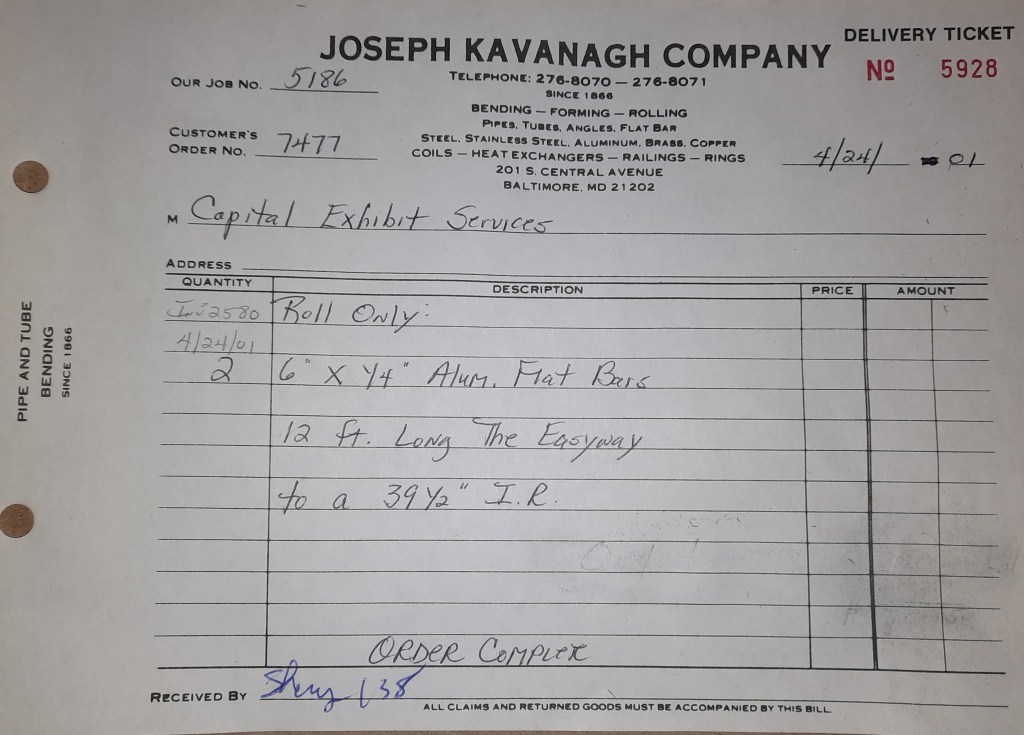 DELIVERY TICKET
JOSEPH KAVANAGH COMPANY
Nº 5928
OUR JOB NO. 5186
TELEPHONE: 276-8070 — 276-8071
SINCE 1866
BENDING — FORMING — ROLLING
PIPES, TUBES, ANGLES, FLAT BAR
CUSTOMER'S ORDER NO. 7477
STEEL, STAINLESS STEEL, ALUMINUM, BRASS, COPPER
COILS — HEAT EXCHANGERS — RAILINGS — RINGS
4/24/ 01
201 S. CENTRAL AVENUE
BALTIMORE, MD 21202
M Capital Exhibit Services
ADDRESS
QUANTITY DESCRIPTION PRICE AMOUNT
2580 Roll Only:
4/24/01
2 6" X 1/4" Alum. Flat Bars
12 ft. Long The Easyway
to a 39 1/2" I.R.
ORDER COMPLETE
RECEIVED BY
ALL CLAIMS AND RETURNED GOODS MUST BE ACCOMPANIED BY THIS BILL
PIPE AND TUBE
BENDING
SINCE 1866